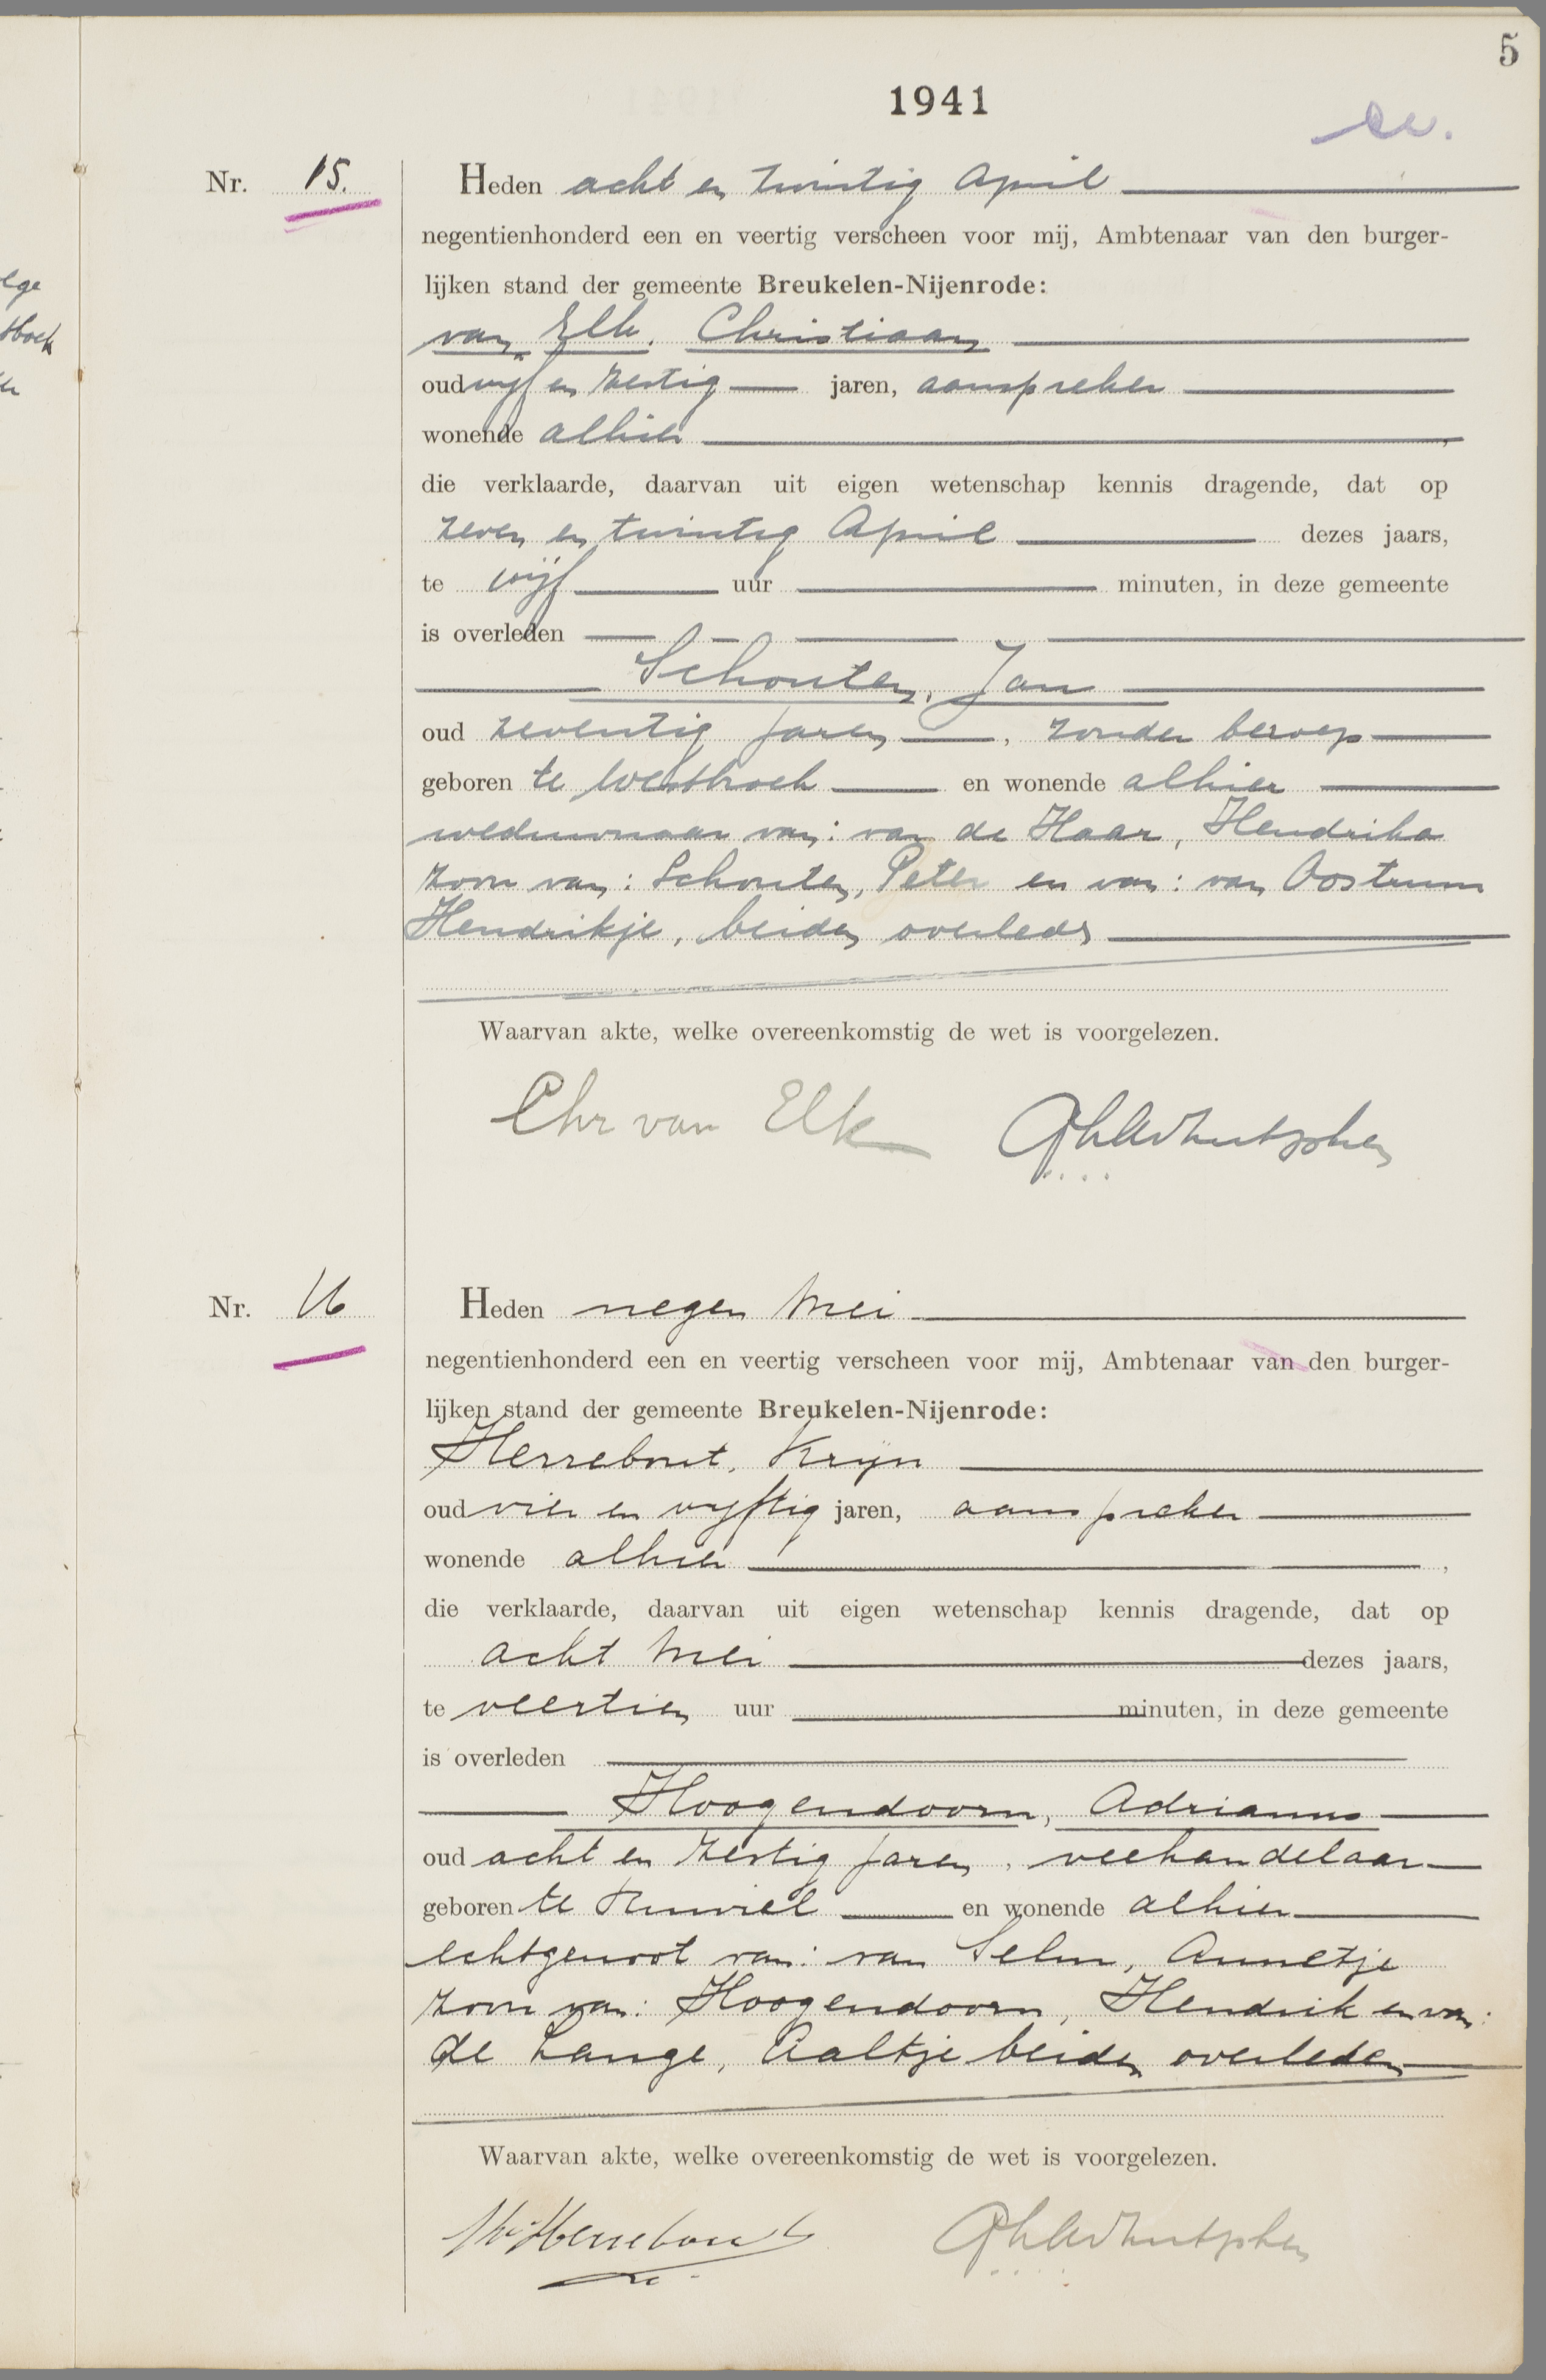 5
1941
Nr. 15.
Heden acht en twintig April
negentienhonderd een en veertig verscheen voor mij, Ambtenaar van den burger-
lijken stand der gemeente Breukelen-Nijenrode:
van Elk. Christiaan
oud vijf en zestig jaren, aanspreker
wonende alhier ,
die verklaarde, daarvan uit eigen wetenschap kennis dragende, dat op
zeven en twintig April dezes jaars,
te vijf uur minuten, in deze gemeente
is overleden
Schouten, Jan
oud zeventig jaren, zonder beroep
geboren te Westbroek en wonende alhier
weduwnaar van: van de Haar, Hendrika
zoon van: Schouten, Peter en van: van Oostrum
Hendrikje, beiden overleden
Waarvan akte, welke overeenkomstig de wet is voorgelezen.
Chr van Elk
Nr. 16
Heden negen Mei
negentienhonderd een en veertig verscheen voor mij, Ambtenaar van den burger-
lijken stand der gemeente Breukelen-Nijenrode:
Herrebout, Krijn
oud vier en vijftig jaren, aanspreker
wonende alhier ,
die verklaarde, daarvan uit eigen wetenschap kennis dragende, dat op
acht Mei dezes jaars,
te veertien uur minuten, in deze gemeente
is overleden
Hoogendoorn, Adrianus
oud acht en zestig jaren, veehandelaar
geboren te Ruwiel en wonende alhier
echtgenoot van: van Selm, Annetje
zoon van: Hoogendoorn, Hendrik en van:
de Lange, Aaltje beiden overleden
Waarvan akte, welke overeenkomstig de wet is voorgelezen.
Herrebout